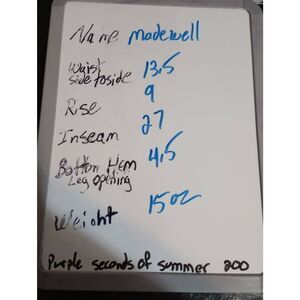 Name madewell
Waist
side to side 13.5
Rise 9
Inseam 27
Bottom Hem
Leg opening 4.5
Weight 15 oz
Purple seconds of summer 200